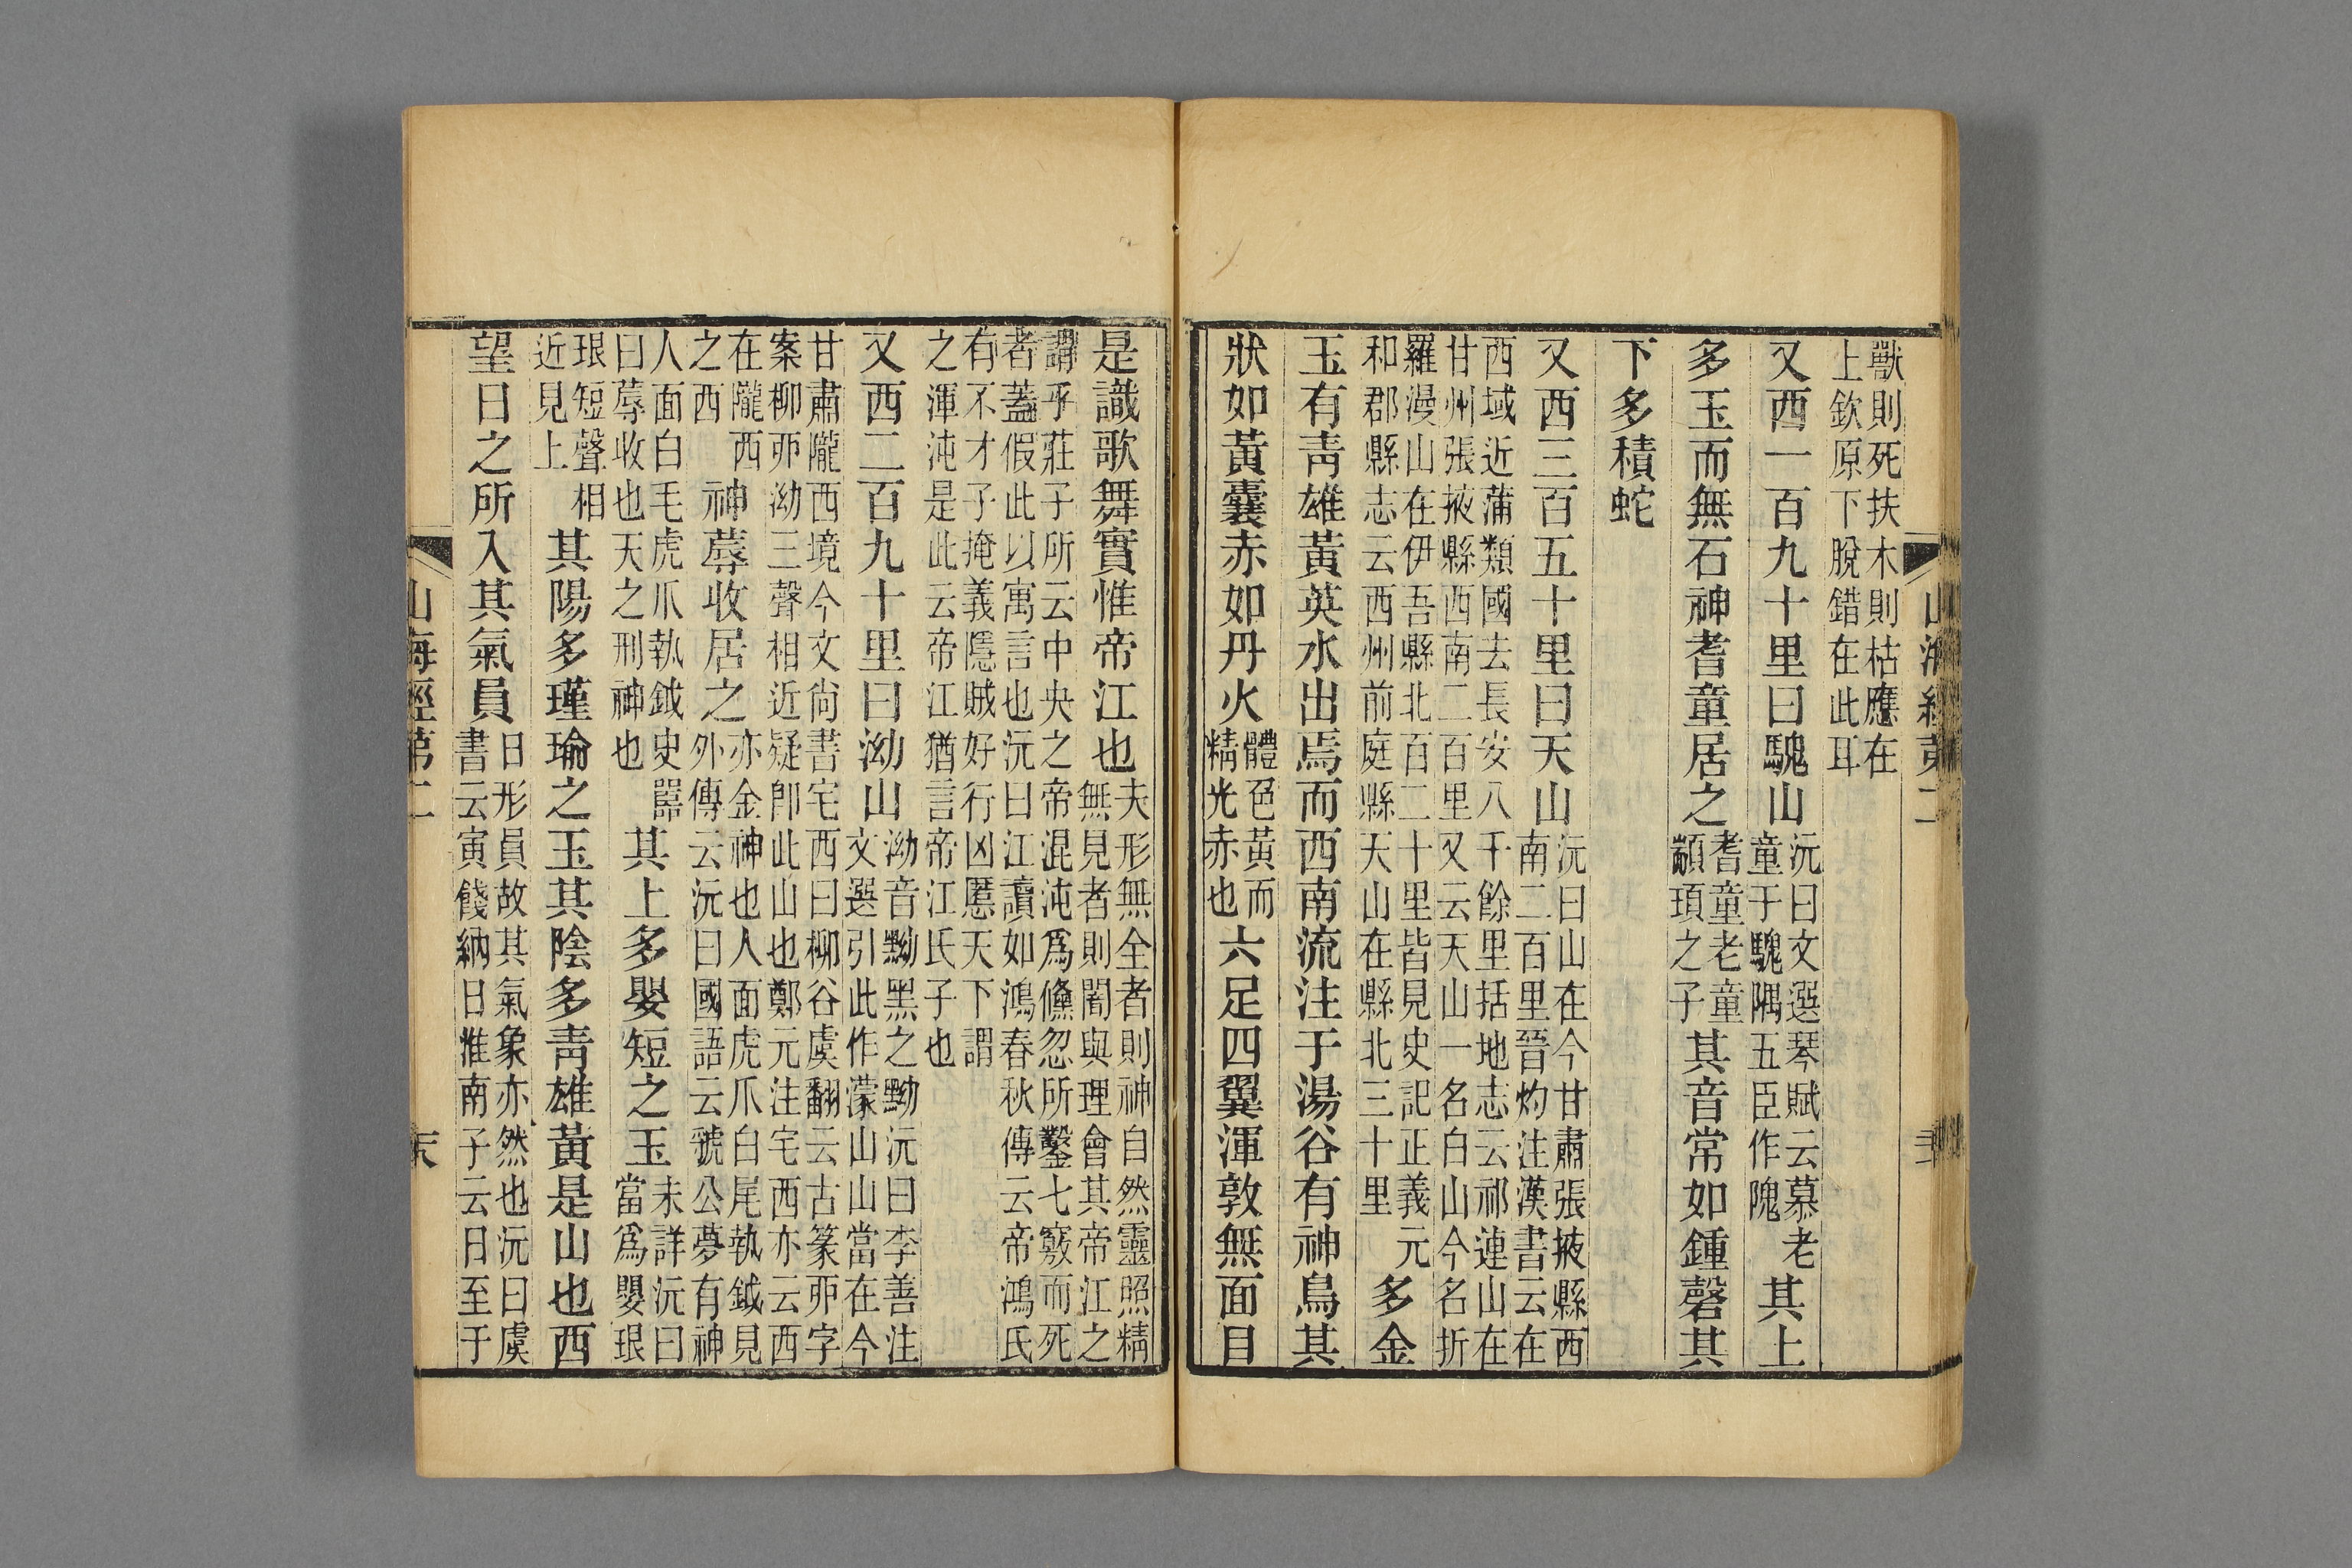 山海經第二
獸則死扶木則枯應在
上欽原下脫錯在此耳
又西一百九十里曰騩山
沅曰文選琴賦云慕老
童于騩隅五臣作隗
其上
多玉而無石神耆童居之
耆童老童
顓頊之子
其音常如鍾磬其
下多積蛇
又西三百五十里曰天山
沅曰山在今甘肅張掖縣西
南二百里晉灼注漢書云在
西域近蒲類國去長安八千餘里括地志云祁連山在
甘州張掖縣西南二百里又云天山一名白山今名折
羅漫山在伊吾縣北百二十里皆見史記正義元
和郡縣志云西州前庭縣天山在縣北三十里
多金
玉有青雄黃英水出焉而西南流注于湯谷有神鳥其
狀如黃囊赤如丹火
體色黃而
精光赤也
六足四翼渾敦無面目
是識歌舞實惟帝江也
夫形無全者則神自然靈照精
無見者則闇與理會其帝江之
謂乎莊子所云中央之帝混沌爲儵忽所鑿七竅而死
者蓋假此以寓言也沅曰江讀如鴻春秋傳云帝鴻氏
有不才子掩義隱賊好行凶慝天下謂
之渾沌是此云帝江猶言帝江氏子也
又西二百九十里曰泑山
泑音黝黑之黝沅曰李善注
文選引此作濛山山當在今
甘肅隴西境今文尚書宅西曰柳谷虞翻云古篆丣字
案柳丣泑三聲相近疑卽此山也鄭元注宅西亦云西
在隴西
之西
神蓐收居之
亦金神也人面虎爪白尾執鉞見
外傳云沅曰國語云虢公夢有神
人面白毛虎爪執鉞史嚚
曰蓐收也天之刑神也
其上多嬰短之玉
未詳沅曰
當爲嬰珢
珢短聲相
近見上
其陽多瑾瑜之玉其陰多青雄黃是山也西
望日之所入其氣員
日形員故其氣象亦然也沅曰虞
書云寅餞納日淮南子云日至于
山海經第二